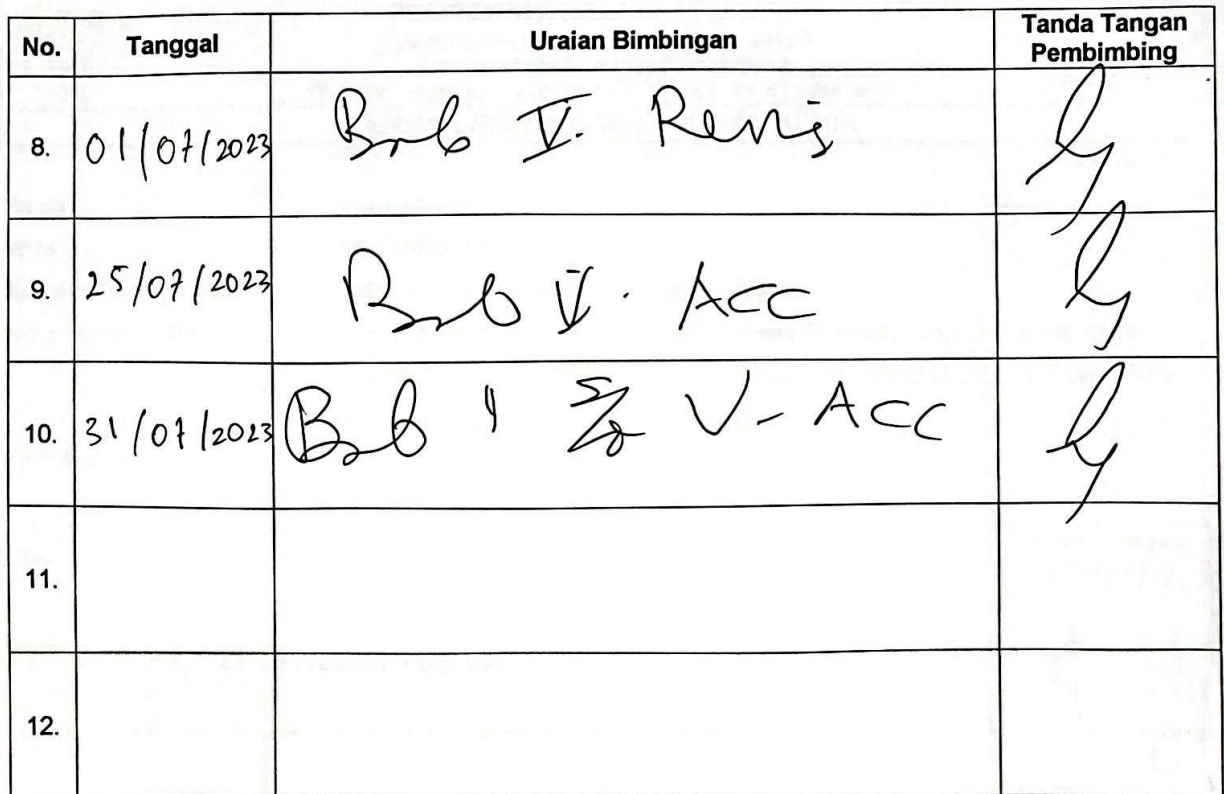 No. Tanggal Uraian Bimbingan Tanda Tangan Pembimbing
8. 01/07/2023 Bab V. Revisi
9. 25/07/2023 Bab V. ACC
10. 31/07/2023 Bab 1 V - ACC
11.
12.